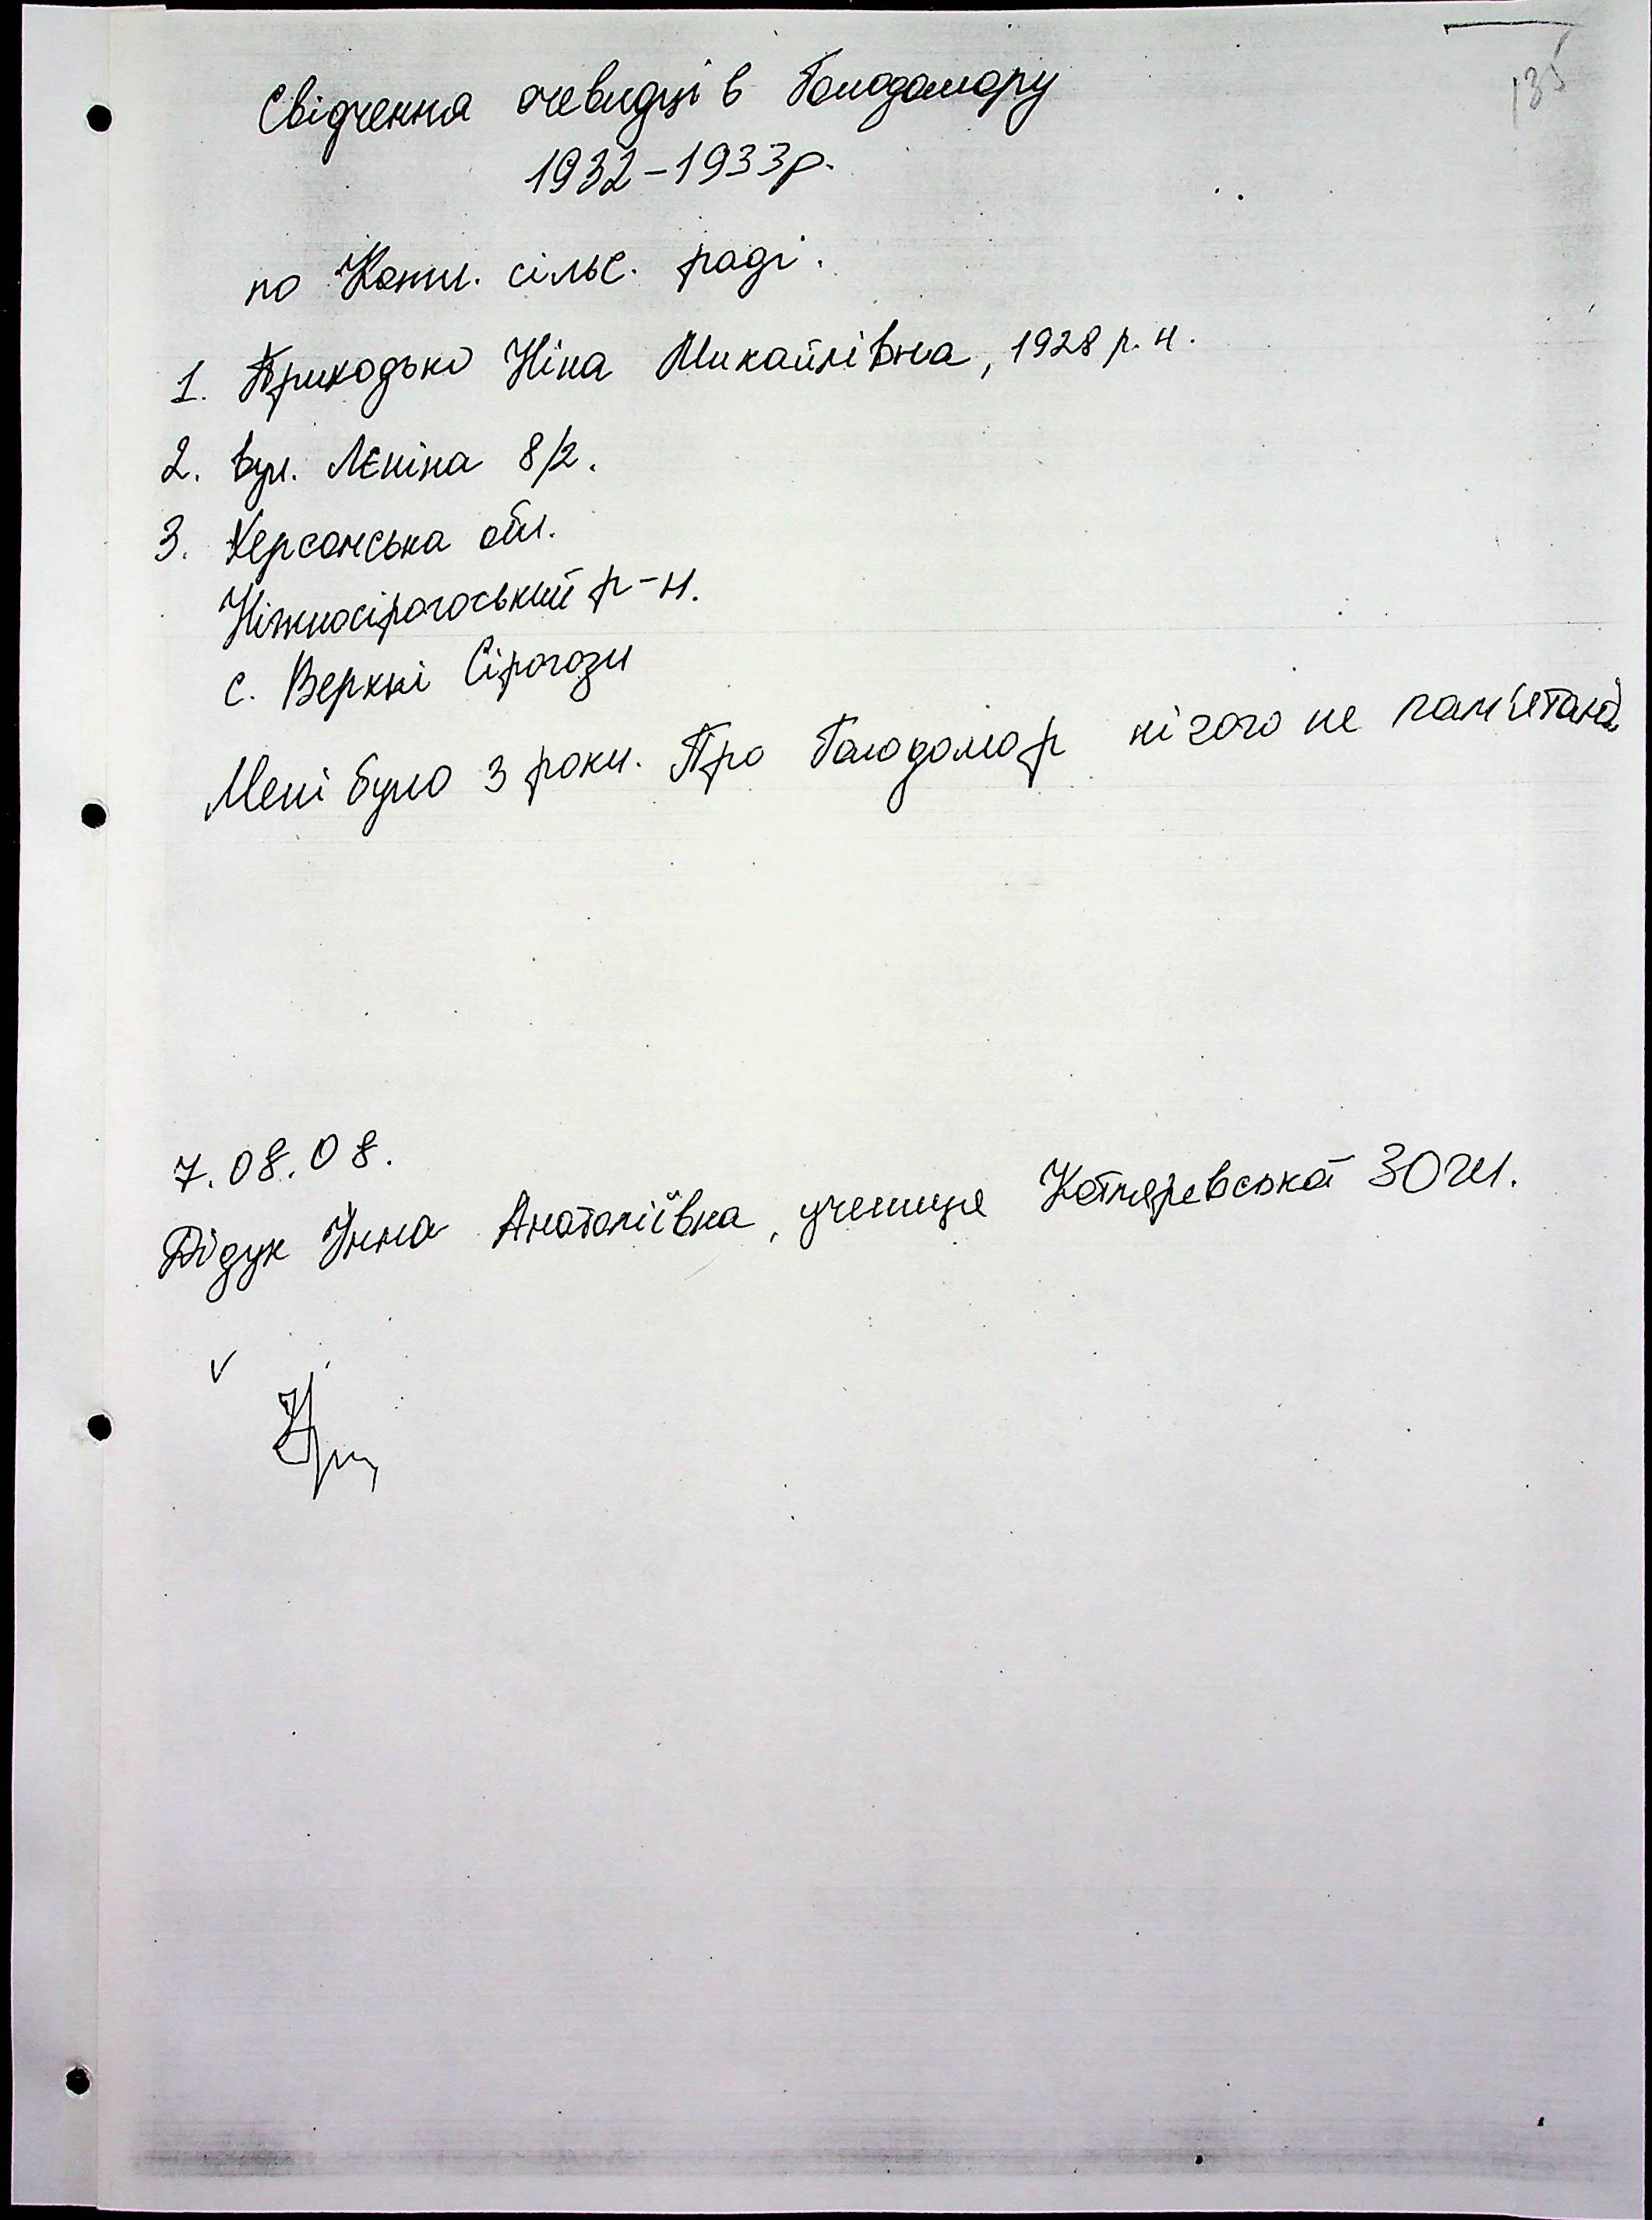 135
Свідчення очевидців Голодомору
1932-1933р.
по Котл. сільс. раді.
1. Приходько Ніна Михайлівна, 1928 р.н.
2. вул. Леніна 8/2.
3. Херсонська обл.
Ніжнюсірогоський р-н.
с. Верхні Сірогози
Мені було 3 роки. Про Голодомор нічого не пам'ятаю.
7.08.08.
Дідук Інна Анатоліївна, учениця Котляревської ЗОШ.